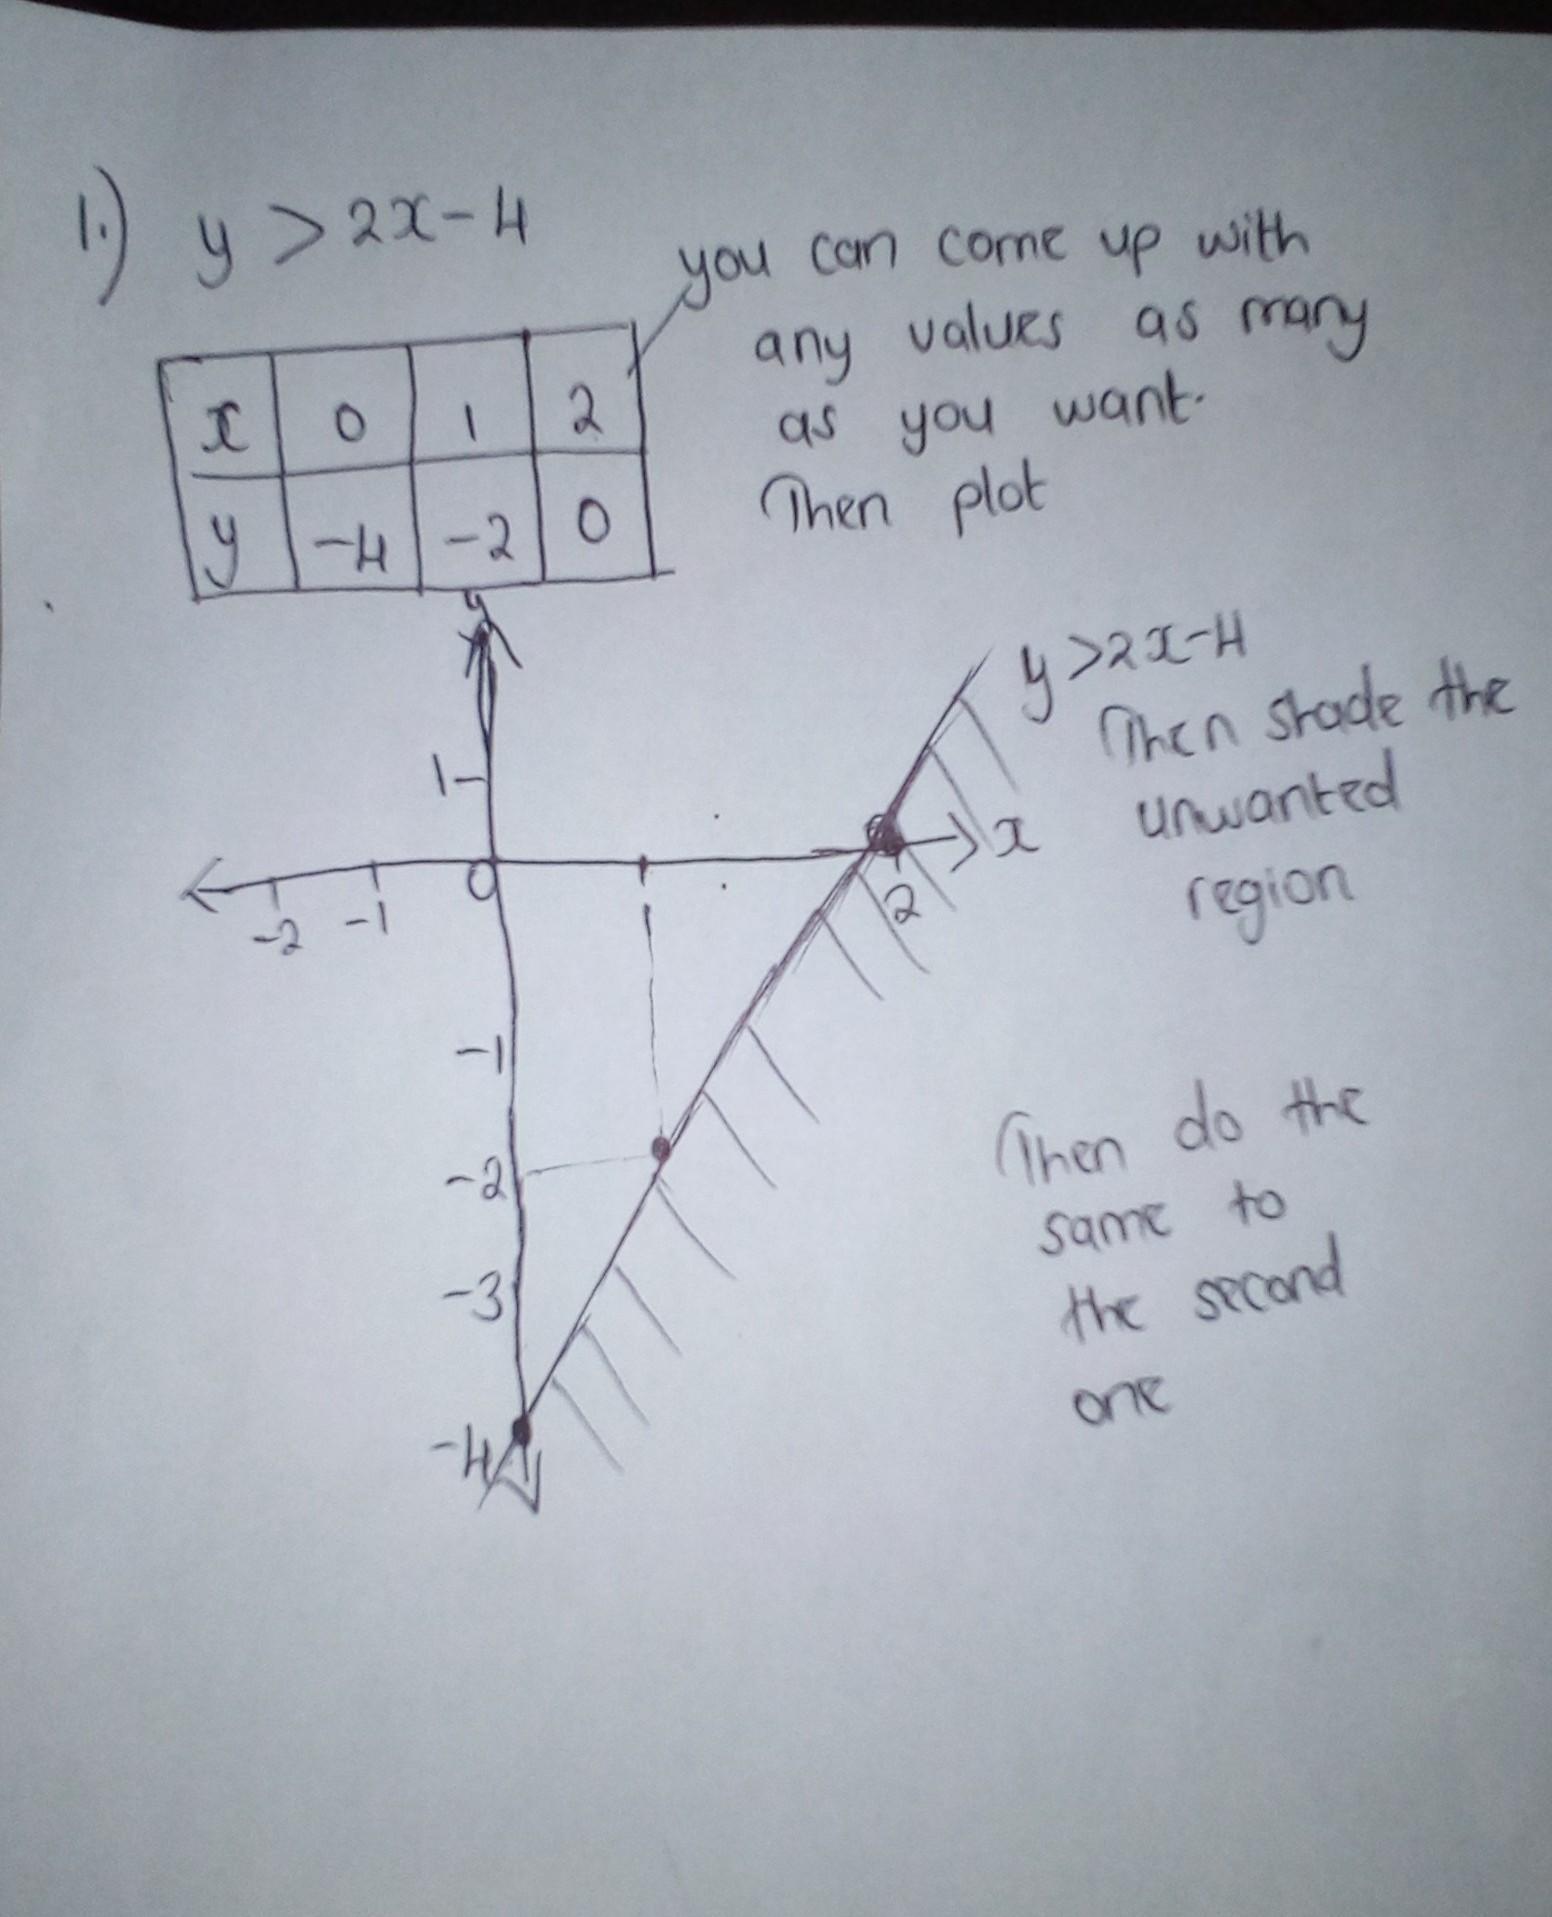 1.) y > 2x - 4
you can come up with
any values as many
as you want.
Then plot
x 0 1 2
y -4 -2 0
y
y > 2x - 4
Then shade the
unwanted
region
1
x
0
-2 -1
2
-1
-2
-3
-4
Then do the
same to
the second
one